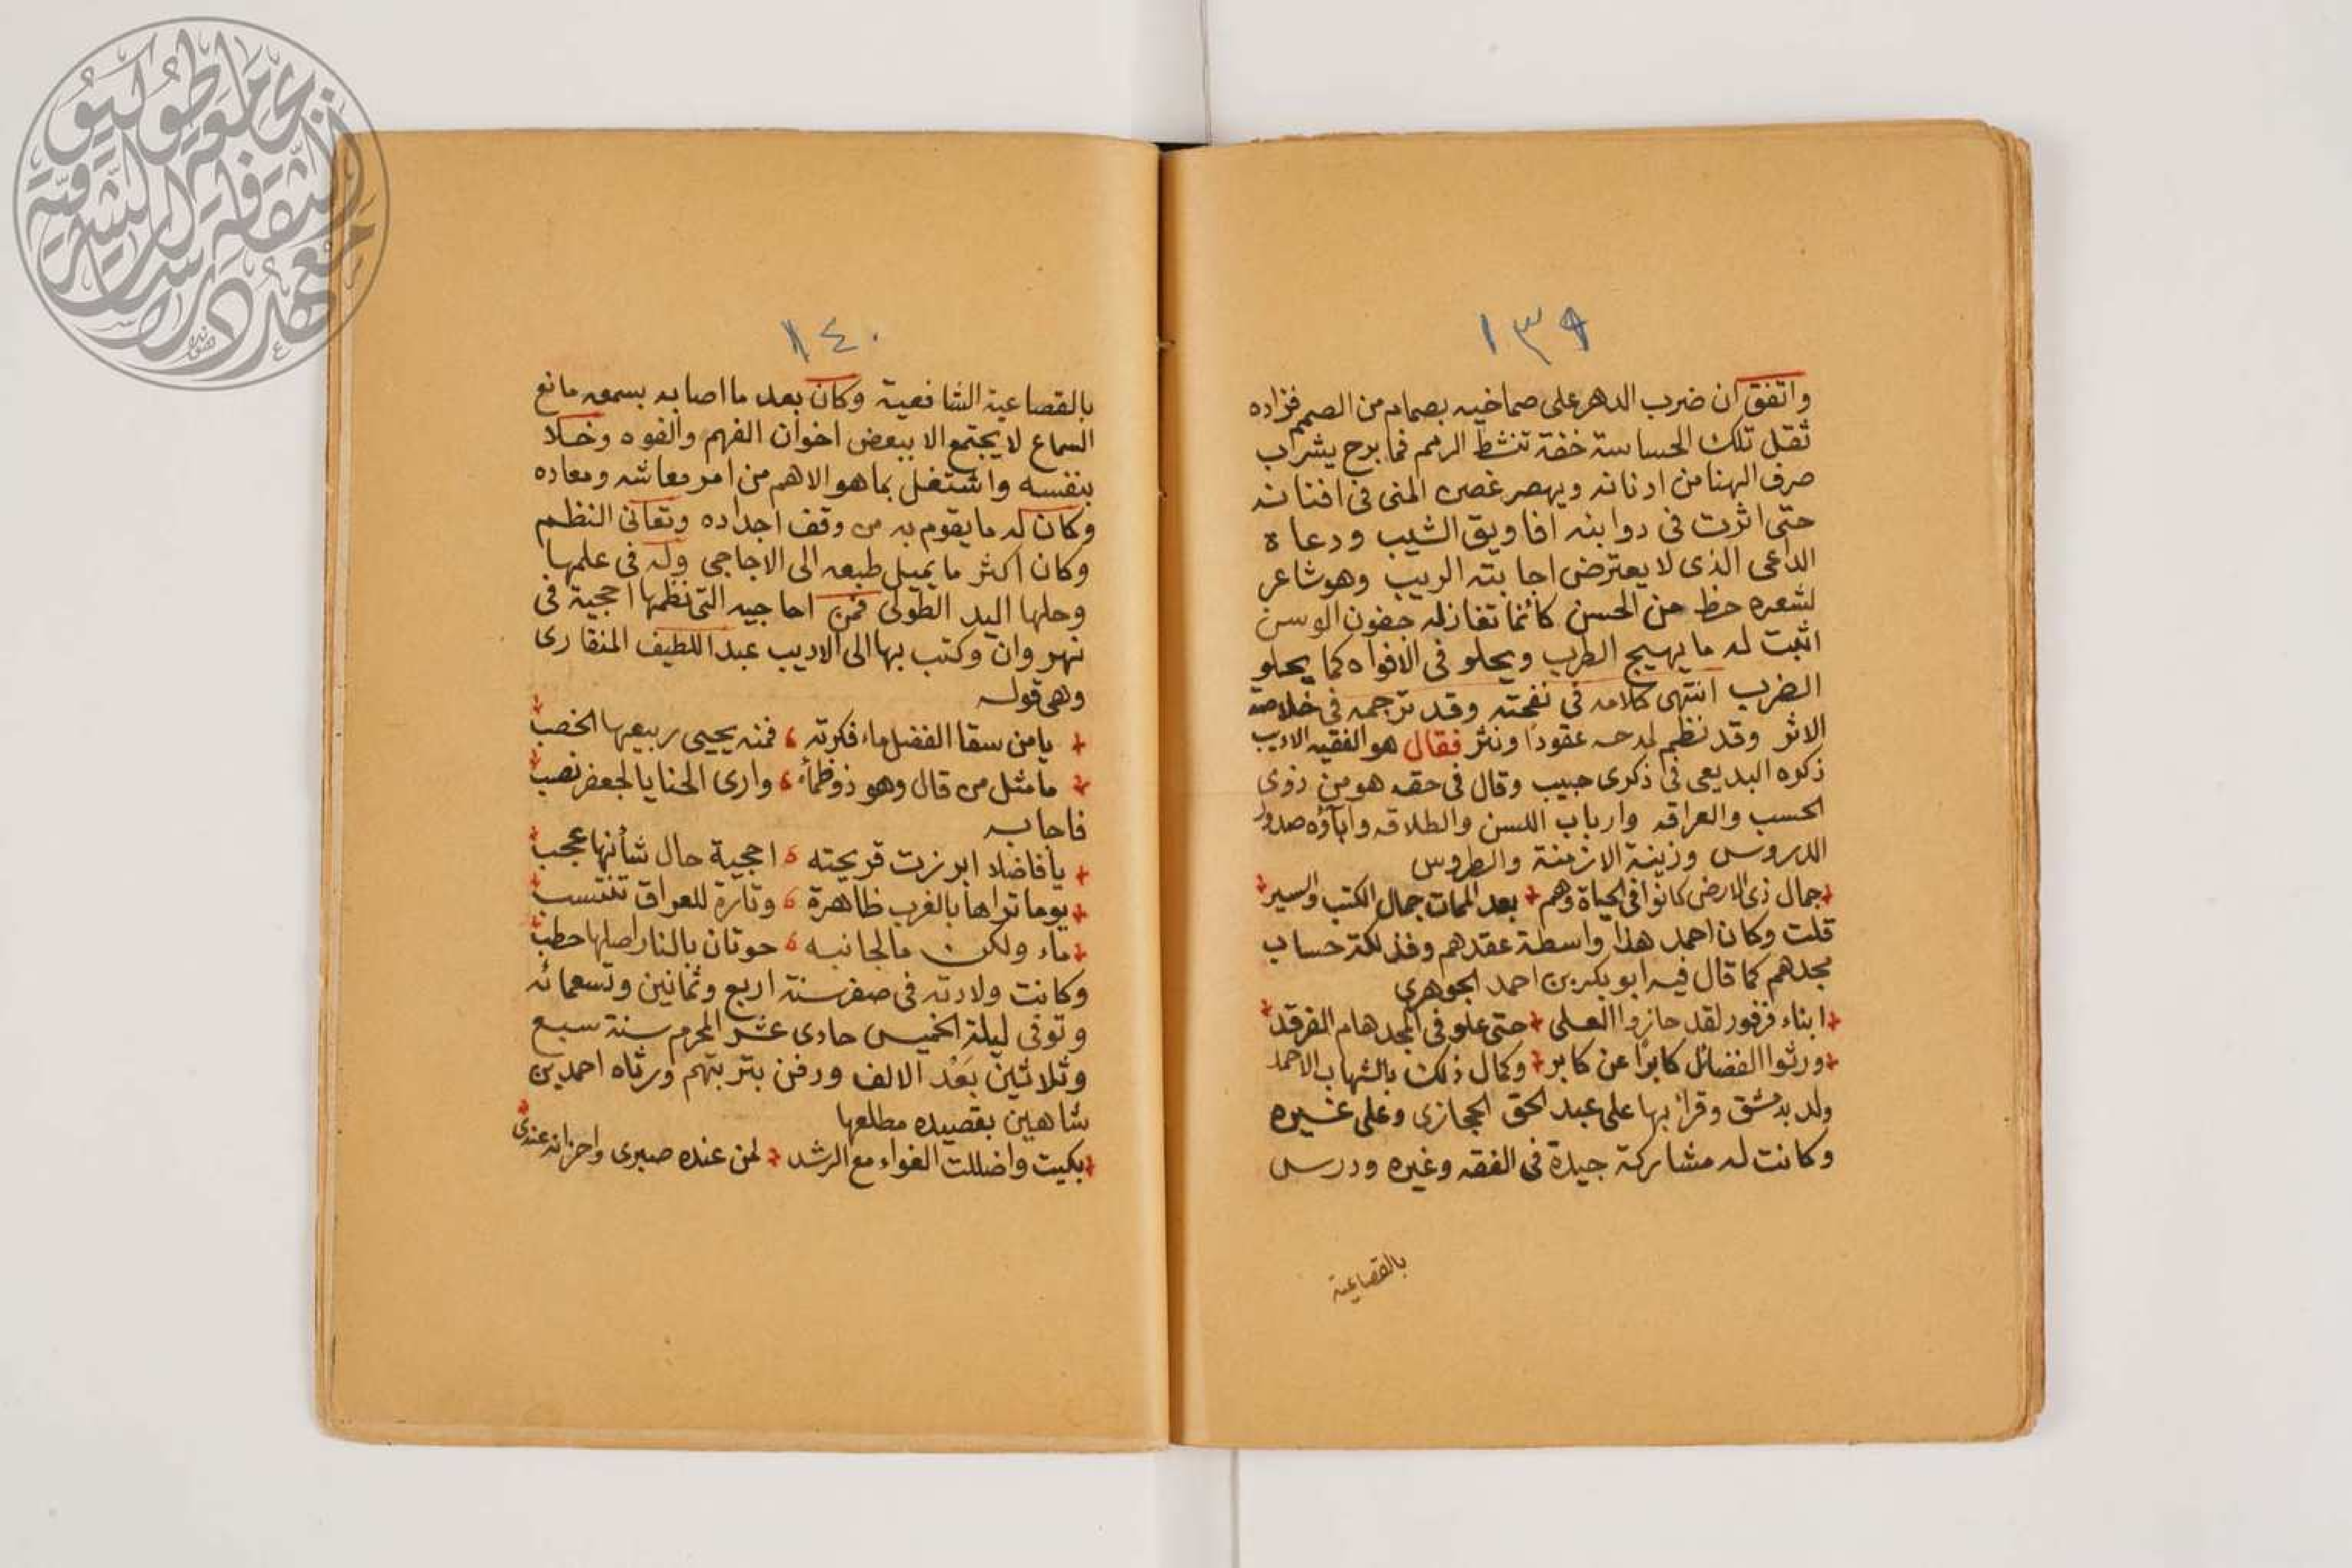 ١٣٩
واتفق ان ضرب الدهر على صماخيه بصمام من الصمم فزاده
ثقل تلك الحساسة خفة تنشط الرمم فما برح يشراب
صرف الهنا من ادنانه ويهصر غصن المنى فى افنانه
حتى اثرت فى دوابنه افاويق الشيب ودعاة
الداعى الذى لا يعترض اجابته الريب وهو شاعر
لشعره حظ من الحسن كانما تغازله جفون الوسن
اثبت له ما يهيج الطرب ويحلو فى الافواه كما يحلو
الضرب انتهى كلامه فى نفحته وقد ترجمه فى خلاصة
الاثر وقد نظم لمدحه عقودًا ونثر فقال هو الفقيه الاديب
ذكره البديعى فى ذكرى حبيب وقال فى حقه هو من ذوى
الحسب والعراقه وارباب اللسن والطلاقه وآباؤه صدور
الدروس وزينة الازمنة والطروس
جمال ذى الارض كانوا فى الحياة وهم بعد الممات جمال الكتب والسير
قلت وكان احمد هذا واسطة عقدهم وفذلكة حساب
مجدهم كما قال فيه ابو بكر بن احمد الجوهرى
ابناء فرفور لقد حازوا العلى حتى علو فى المجد هام الفرقد
ورثوا الفضائل كابرًا عن كابر وكمال ذلك بالشهاب الاحمد
ولد بدمشق وقرأ بها على عبد الحق الحجازى وعلى غيره
وكانت له مشاركة جيدة فى الفقه وغيره ودرس
بالقصاعية
١٤٠
بالقصاعية الشافعية وكان بعد ما اصابه بسمعه مانع
السماع لا يجتمع الا ببعض اخوان الفهم والفوه وخلا
بنفسه واشتغل بما هو الاهم من امر معاشه ومعاده
وكان له ما يقوم به من وقف اجداده وتعانى النظم
وكان اكثر ما يميل طبعه الى الاجاجى وله فى علمها
وحلها اليد الطولى فمن احاجيه التى نظمها احجية فى
نهروان وكتب بها الى الاديب عبد اللطيف المنقارى
وهى قوله
يا من سقا الفضل ماء فكرته فمنه يحيى ربيعها الخصب
ما مثل من قال وهو ذو ظمأ وارى الحنايا لجعفر نصب
فاجابه
يا فاضلا ابرزت قريحته احجية حال شأنها عجب
يوما تراها بالغرب ظاهرة وتارة للعراق تنتسب
ماء ولكن ما لجانبه حوتان بالنار اصلها حطب
وكانت ولادته فى صفر سنة اربع وثمانين وتسعمائه
وتوفى ليلة الخميس حادى عشر المحرم سنة سبع
وثلاثين بَعْد الالف ودفن بتربتهم ورثاه احمد بن
شاهين بقصيده مطلعها
بكيت واضللت الفواء مع الرشد لمن عنده صبرى واحزانه عندى